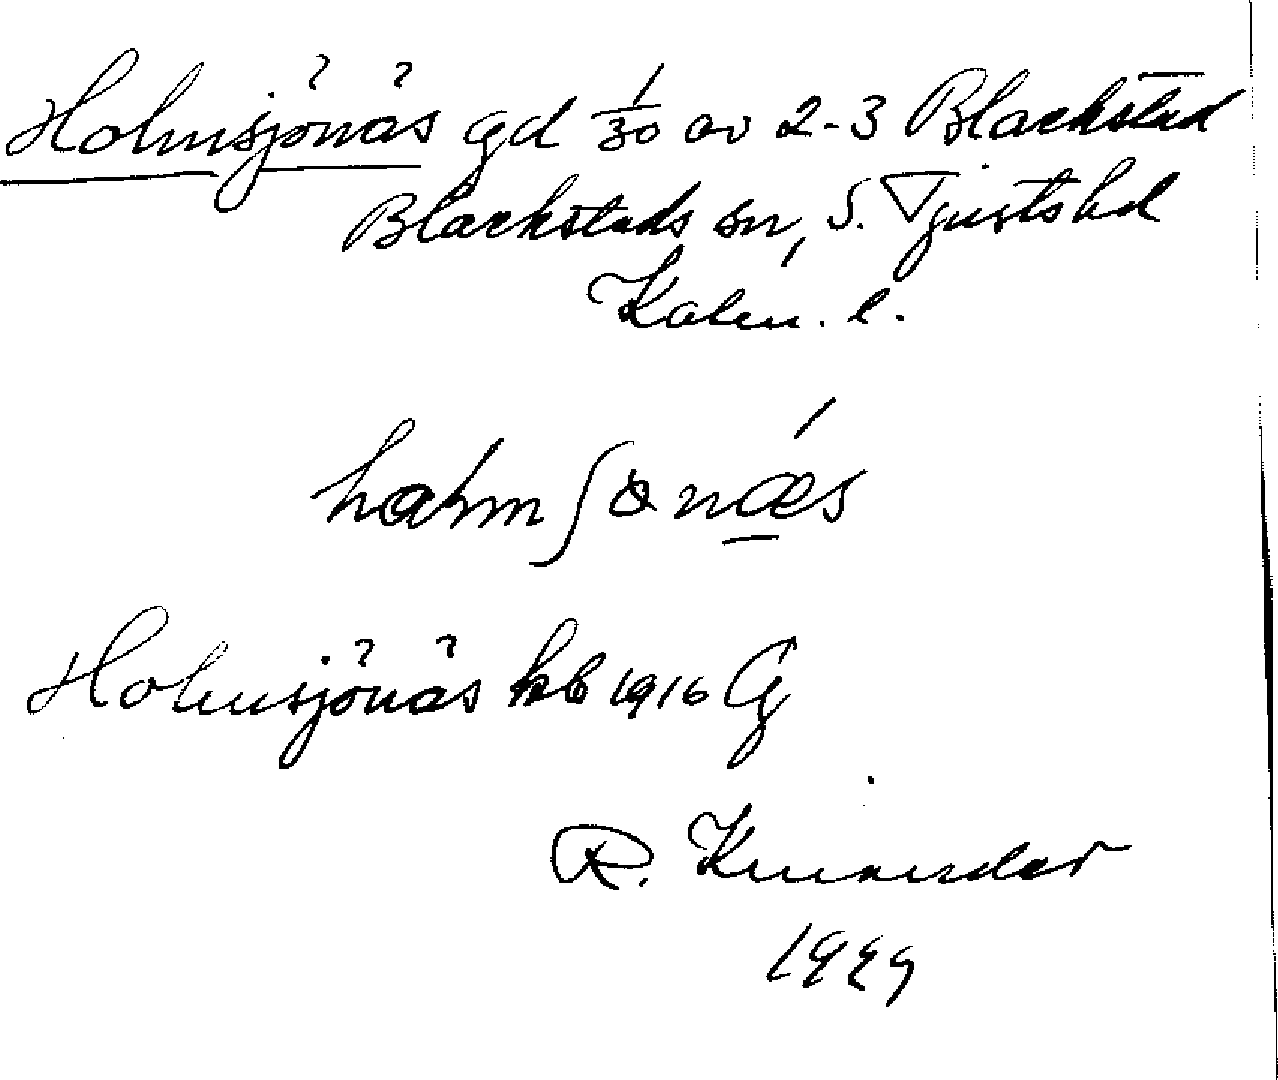 Holmsjönäs gd 1/30 av 2-3 Blackstad
Blackstads sn, S. Tjusts hd
Kalm. l.
hωlmʃɵnǽ̱s
Holmsjönäs kb 1916 Cg
R. Kinander
1929